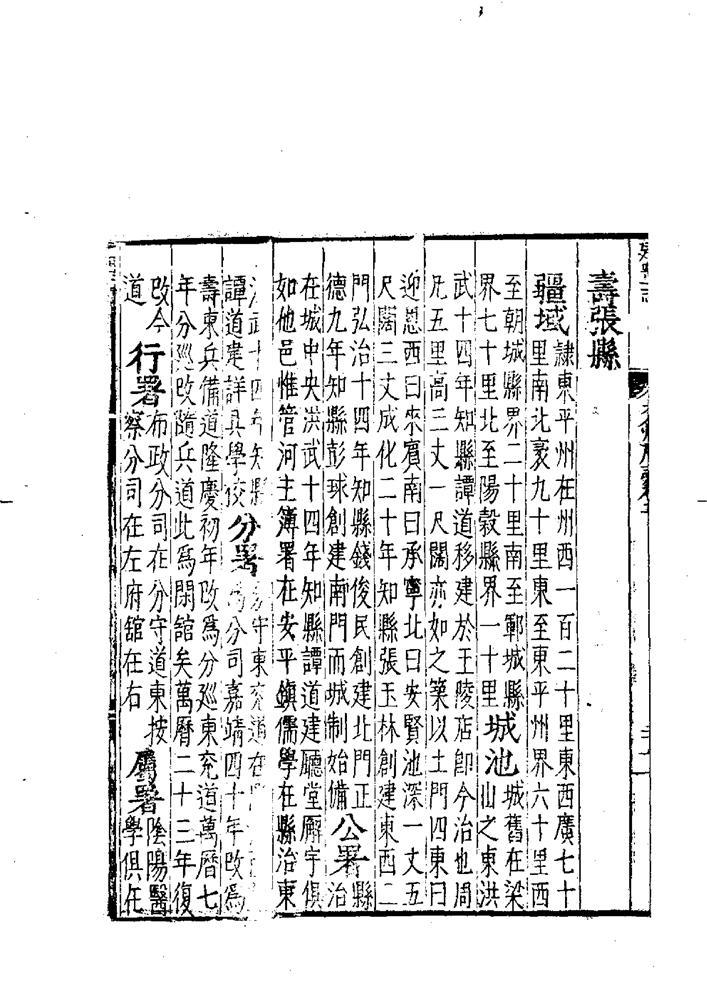 壽張縣
疆域隸東平州在州西一百二十里東西廣七十
里南北袤九十里東至東平州界六十里西
至朝城縣界二十里南至鄆城縣
界七十里北至陽穀縣界一十里城池城舊在梁
山之東洪
武十四年知縣譚道移建於王陵店即今治也周
凡五里高三丈一尺闊亦如之築以土門四東曰
迎恩西曰來賓南曰承寧北曰安賢池深一丈五
尺闊三丈成化二十年知縣張玉林創建東西二
門弘治十四年知縣錢俊民創建北門正
德九年知縣彭球創建南門而城制始備公署縣
治
在城中央洪武十四年知縣譚道建廳堂廨宇俱
如他邑惟管河主簿署在安平鎮儒學在縣治東
武十四年知縣
譚道建詳具學校分署守東兗道在
為分司嘉靖四十年改為
壽東兵備道隆慶初年改為分巡東兗道萬曆七
年分巡改隨兵道此為閒舘矣萬曆二十三年復
改今
道行署布政分司在分守道東按
察分司在左府舘在右屬署陰陽醫
學俱在